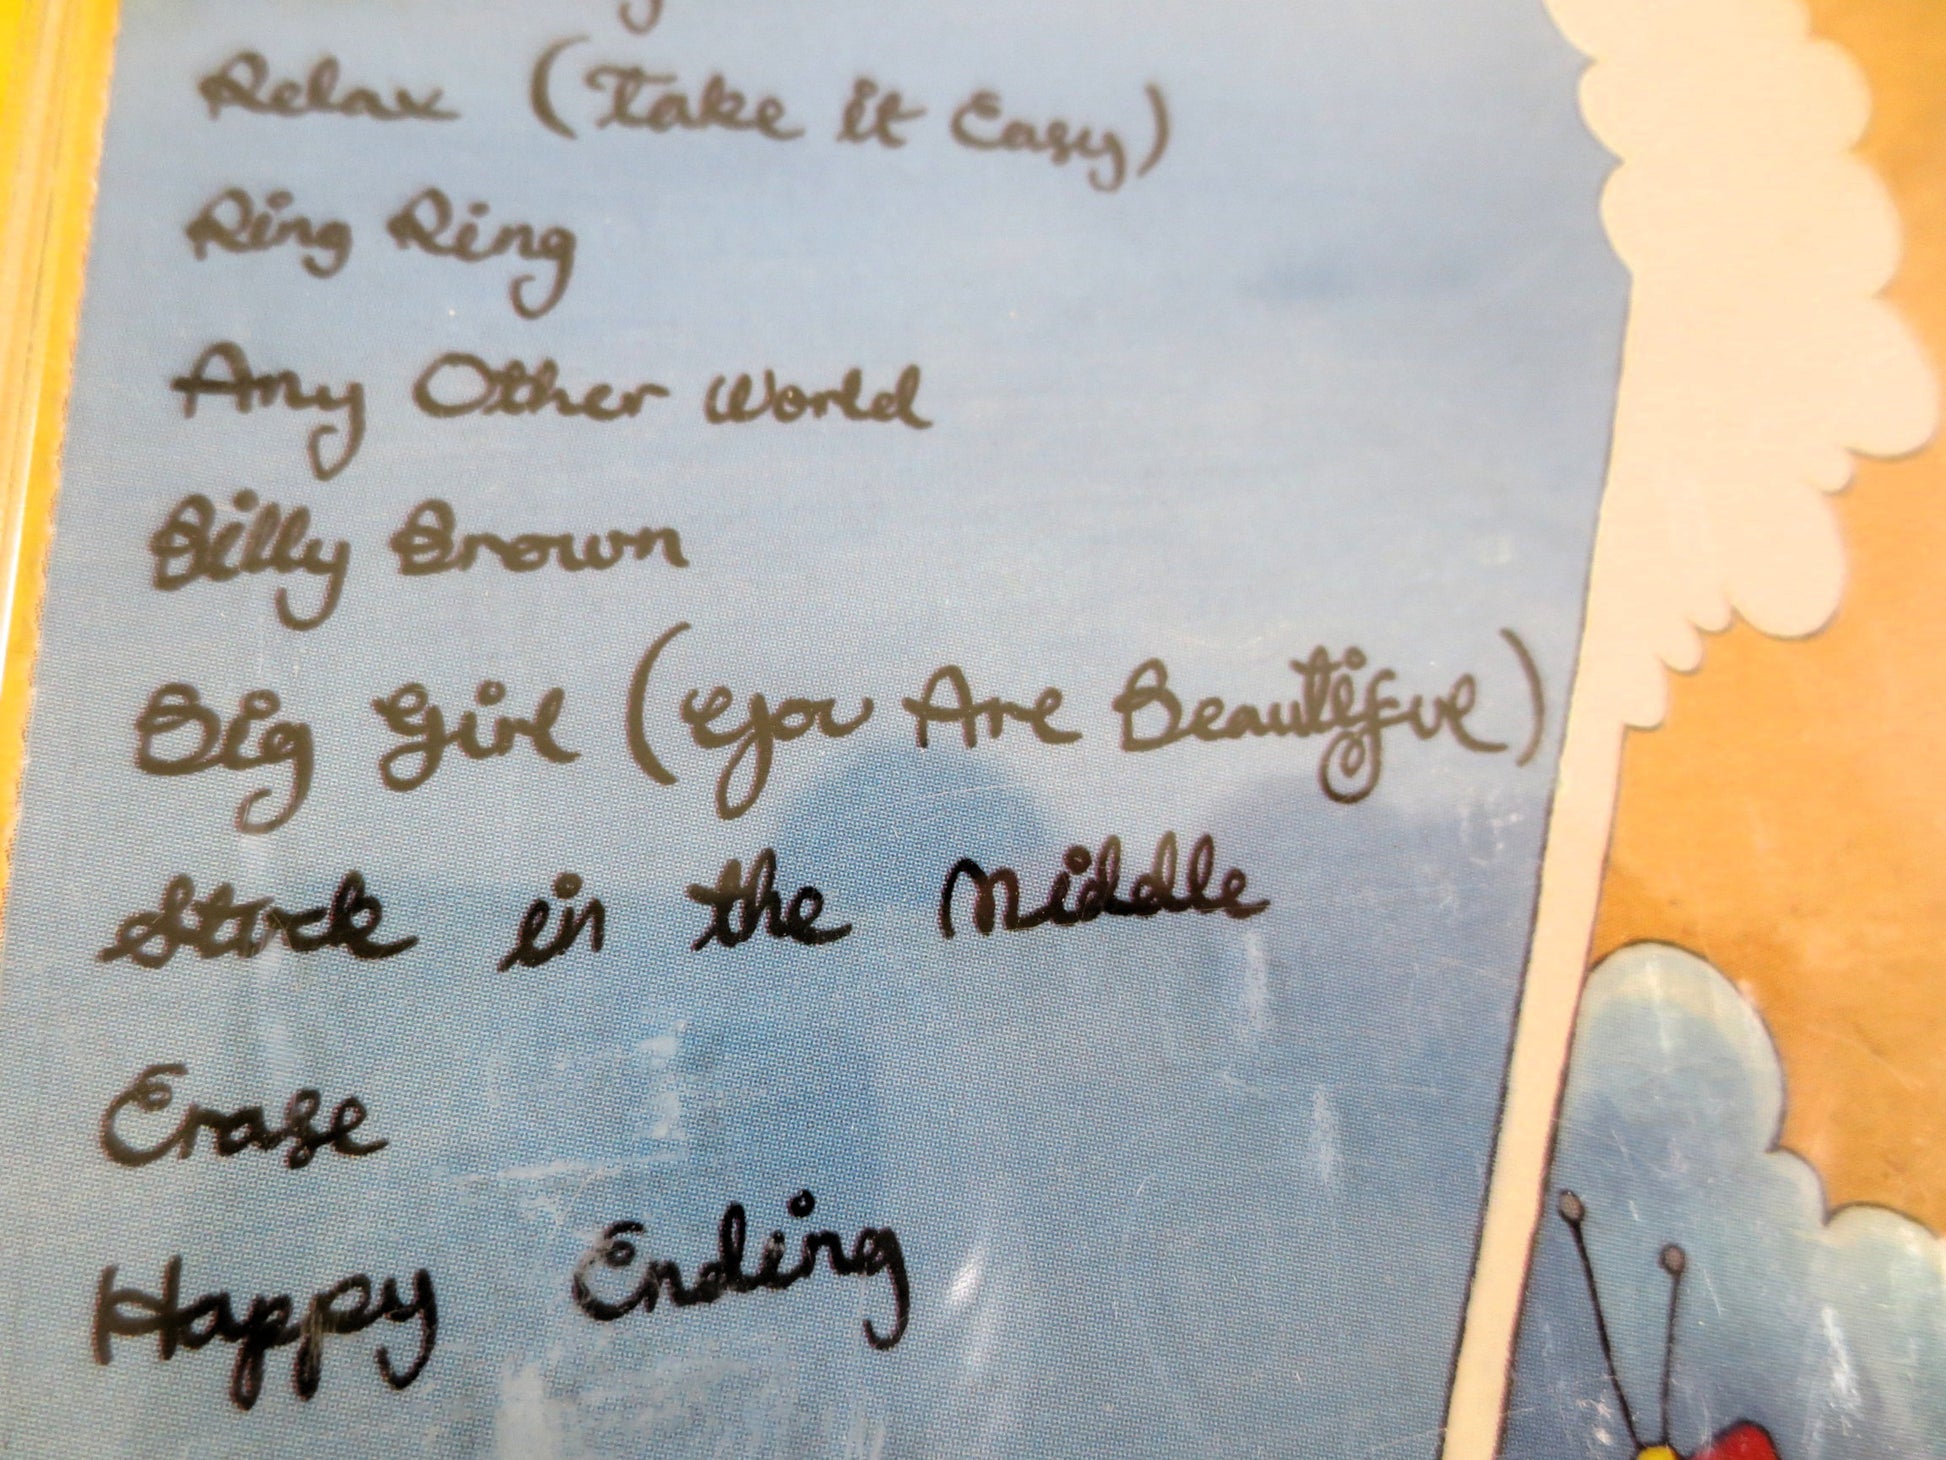 Relax (Take it Easy)
Ring Ring
Any Other World
Billy Brown
Big Girl (You Are Beautiful)
Stuck in the Middle
Erase
Happy Ending